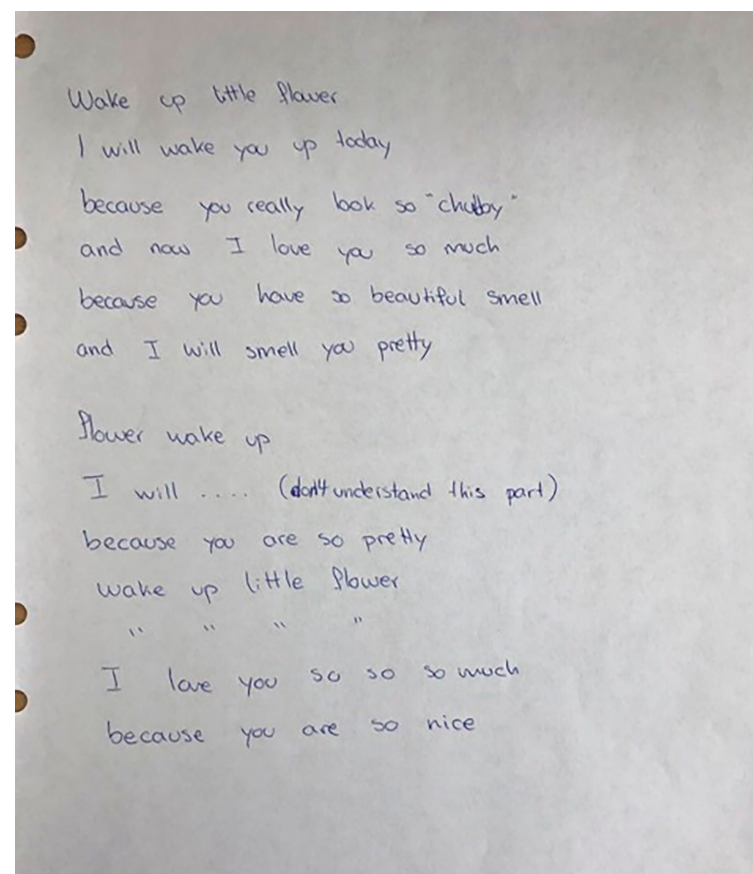 Wake up little flower
I will wake you up today
because you really look so "chubby"
and now I love you so much
because you have so beautiful smell
and I will smell you pretty
flower wake up
I will .... (don't understand this part)
because you are so pretty
wake up little flower
" " " "
I love you so so so much
because you are so nice